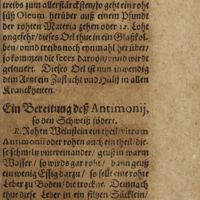 treibs zum allerstärcksten / so geht ein roht
süß Oleum herüber auß einem Pfundt
der rohten Materia zehen oder 12. Loht
ongefehr / dieses Oel thue in ein Glaßkol-
ben / vnnd treibs noch eynmahl herüber /
so kommen die feces daruon / vnnd wirdt
geleutert. Dieses Oel ist nun inwendig
dem Artzt ein Zuflucht vnd Hülff in allen
Kranckheiten.
Ein Bereitung deß Antimonij,
so den Schweiß födert.
℞. Rohten Weinstein ein theil / vitrum
Antimonii oder rohten auch ein theil / die-
se schmeltz vntereinander / geuß in warm
Wasser / so wirds gar roht / dann geuß
ein wenig Essig darzu / so felle eine rohte
Leber zu Boden / die trockne. Demnach
thue diese Leber in ein silbern Säcklein /